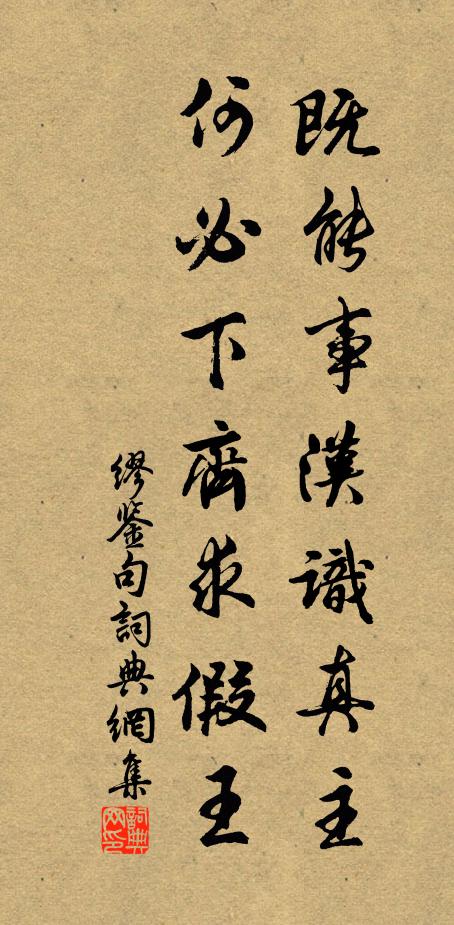 既能事漢識真主
何必下齊求假王
繆鉴句詞典網集
詞典网印